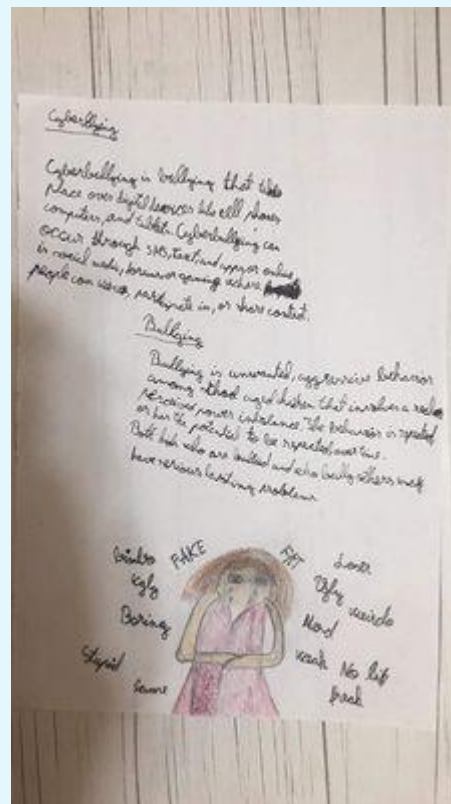 Cyberbllying
Cyberbullying is bullying that takes
place over digital devices like cell phones
computers, and tablets. Cyberbullying can
occur through SMS, text and apps, or online
in social media, forums, or gaming where
people can view, participate in, or share content.
Bullying
Bullying is unwanted, aggressive behavior
among school aged children that involves a real or
perceived power imbalance. The behavior is repeated
or has the potential to be repeated over time.
Both kids who are bullied and who bully others may
have serious lasting problems
FAKE
Ugly
Boring
Stupid
FAT
Loser
Ugly weirdo
Nerd
weak No life
freak